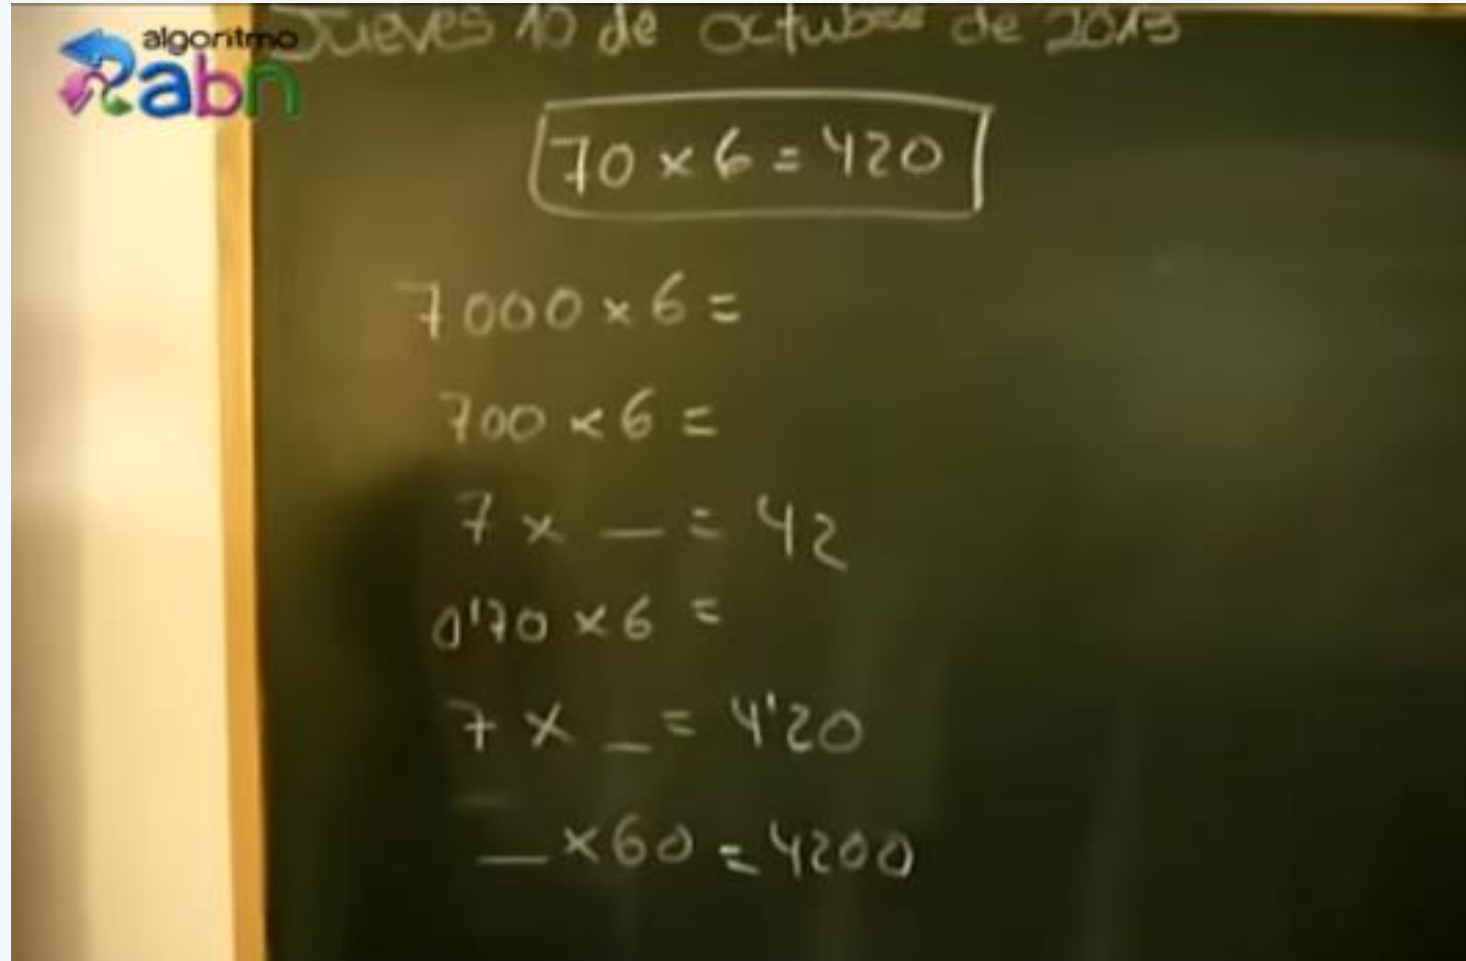 algoritmo
abn
Jueves 10 de octubre de 2013
70 × 6 = 420
7000 × 6 =
700 × 6 =
7 × _ = 42
0'70 × 6 =
7 × _ = 4'20
_ × 60 = 4200